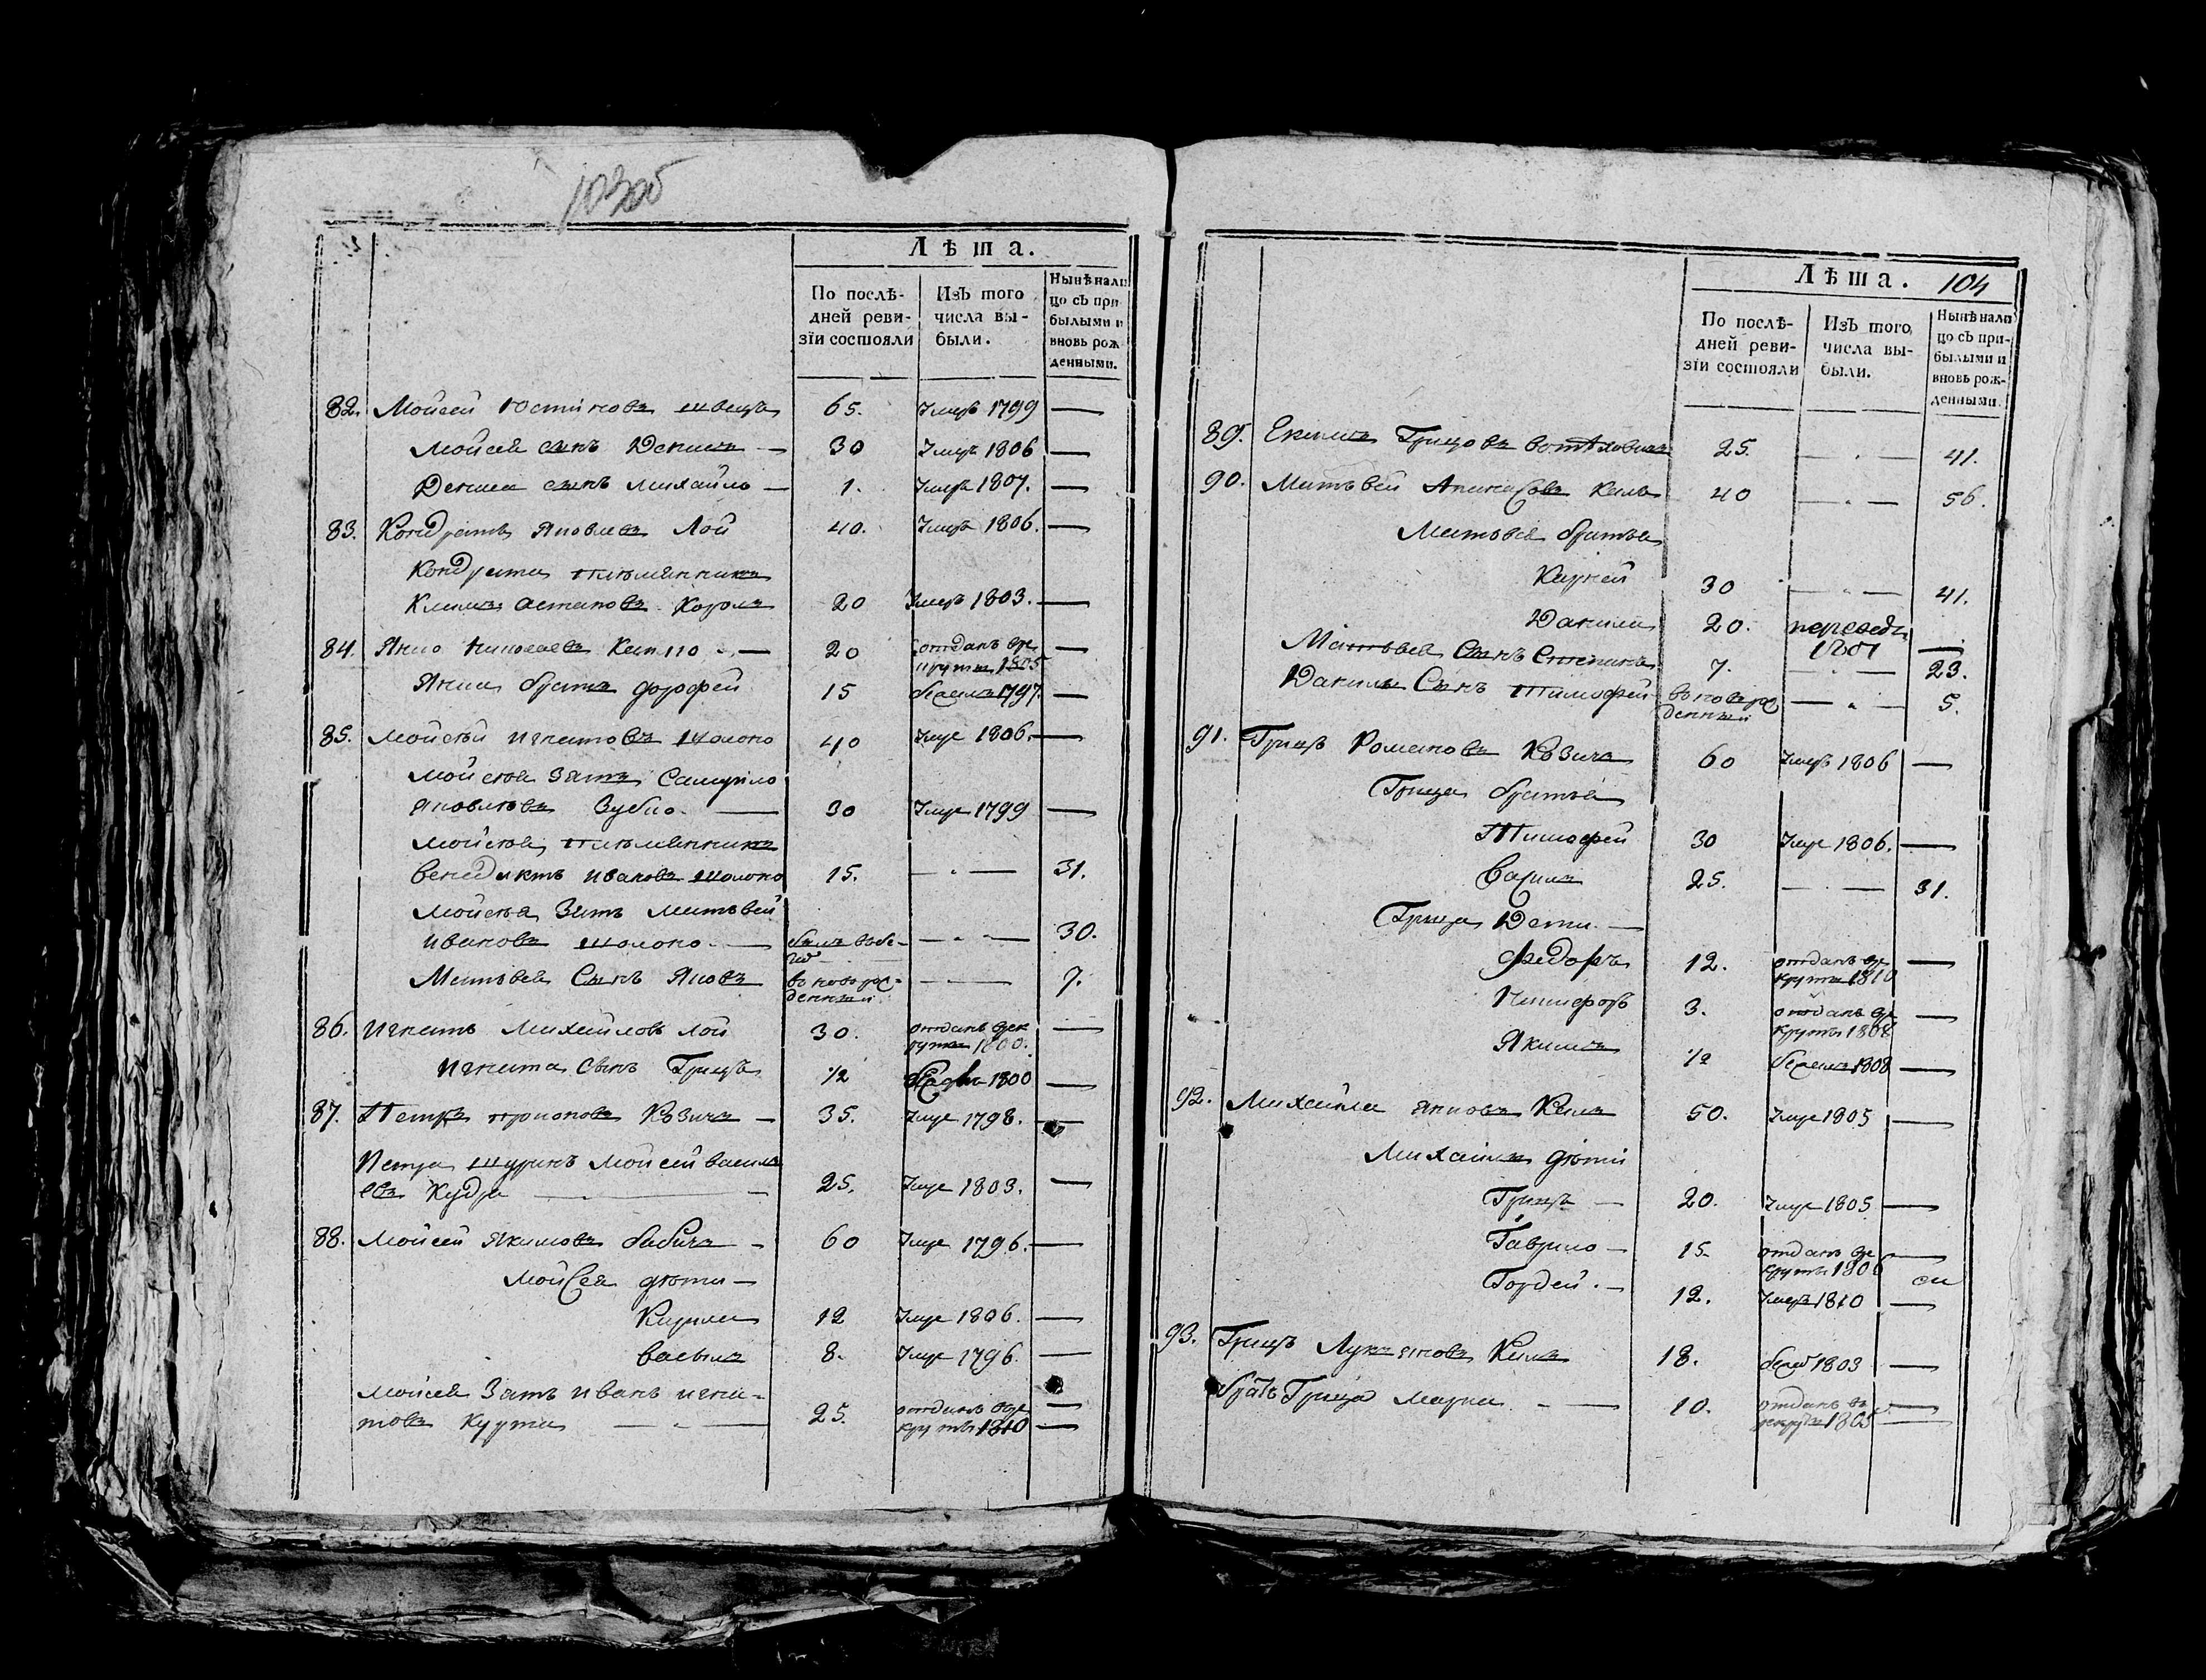 103об
Лѣта.
По послѣ-
дней реви-
зіи состояли
Изъ того
числа вы-
были.
Нынѣ нали
цо съ при
былыми и
вновь рож
денными.
82. Мойсей Юстіновъ швецъ 65. Умеръ 1799 —
Мойсея сынъ Денисъ — 30 Умръ 1806 —
Дениса сынъ михайло — 1. Умеръ 1807. —
83. Кондратъ Яковлевъ Лой 40. Умеръ 1806. —
Кондрата племянникъ
Климъ астаповъ Король 20 Умеръ 1803. —
84. Янко николаевъ 20 отданъ вре
круты 1805 —
Янка братъ дорофей 15 бежалъ 1797. —
85. Мойсѣй игнатовъ шолоно 40 Умре 1806. —
мойсея зять Самуйло
яковлевъ Зубко. — 30 Умре 1799 —
мойсѣя племянникъ
венедиктъ ивановъ шолоно 15. — 31.
мойсѣя Зять матвѣй
ивановъ шолоно — былъ въ бе-
гах — 30.
Матвѣя Сынъ Яковъ вновь рож-
денный — 7.
86. игнатъ михайловъ лой 30. отданъ врек
руты 1800. —
игната сынъ Грицъ 1/2 1800 —
87. Петръ прокоповъ Козичъ — 35. Умре 1798. —
Петра шуринъ мойсей василь
евъ Кудра — 25. Умре 1803. —
88. Мойсей Якимовъ бабичъ — 60 Умре 1796. —
мойсея дѣти —
Кирила 12 Умре 1806. —
василь 8. Умре 1796. —
мойсея Зять иванъ игна-
товъ Курта — 25. отданъ вре —
круты 1810 —
Лѣта. 104
По послѣ-
дней реви-
зіи состояли
Изъ того
числа вы-
были.
Нынѣ нали
цо съ при-
былыми и
вновь рож-
денными.
89. Екимъ Грицовъ 25. — 41.
90. Матвѣй Апанасовъ Киль 40 — 56.
Матвѣя братья
Карней 30 — 41.
Данила 20. переведъ
1801 —
Матвѣя Сынъ Степанъ 7. — 23.
Данилы Сынъ Тимофей вновь рож
денный — 5.
91. Грицъ Романовъ Козичъ 60 Умеръ 1806 —
Грица братья
Тимофей 30 Умре 1806. —
Василь 25. — 31.
Грица Дети. —
Федоръ 12. отданъ вре
круты 1810 —
Никифоръ 3. отданъ вре
круты 1808 —
Якимъ 1/2 бежалъ 1808 —
92. Михайла янковъ Киль 50. Умре 1805 —
Михайлы дѣти
Грицъ — 20. Умре 1805 —
Гаврило — 15 отданъ вре
круты 1806 —
Гордей. — 12. Умеръ 1810 —
93. Грицъ Лукьяновъ Киль 18. 1803 —
братъ Грица марка — 10. отданъ въ
рекруты 1805 —